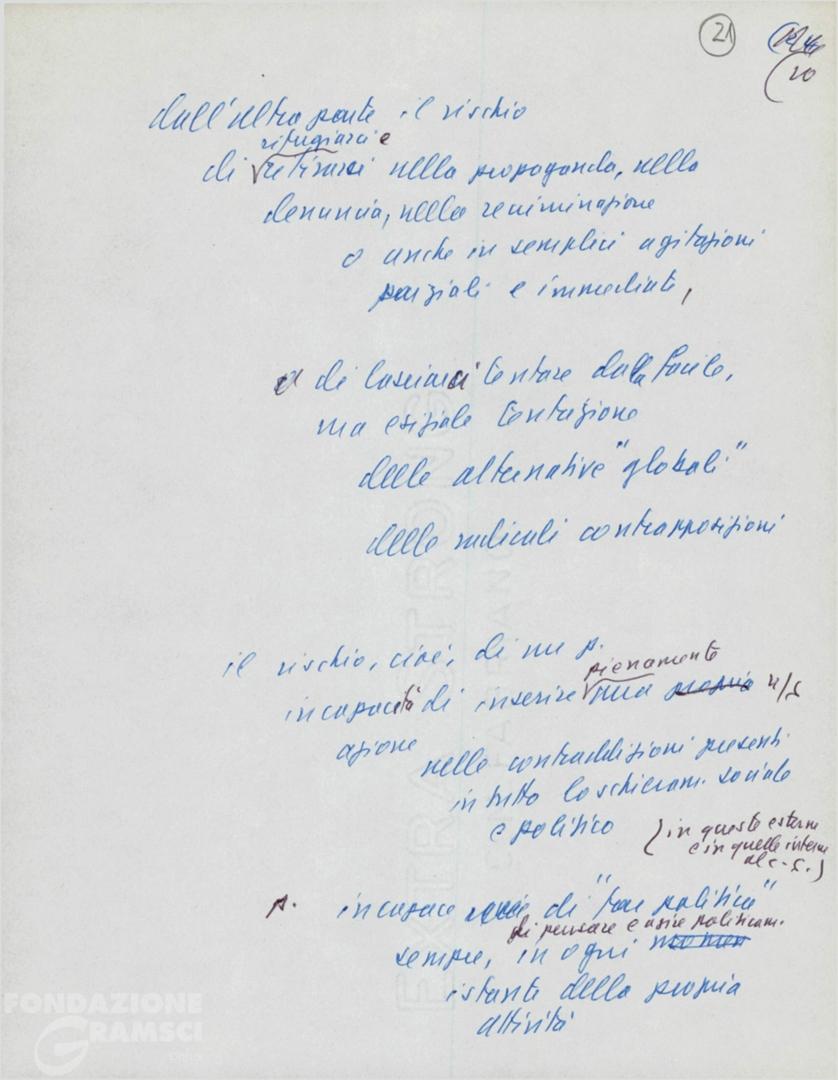 21
20
dall'altra parte il rischio
rifugiarci e
di ritirarci nella propaganda, nella
denuncia, nella recriminazione
o anche in semplici agitazioni
parziali e immediate,
o di lasciarci tentare dalla facile,
ma esiziale tentazione
delle alternative "globali"
delle radicali contrapposizioni
il rischio, cioè, di un p.
pienamente
incapacità di inserire una propria n/s
azione
nelle contraddizioni presenti
in tutto lo schieram. sociale
e politico
(in queste esterne
e in quelle interne
al c.-s.)
p. incapace cioè di "fare politica"
di pensare e agire politicam.
sempre, in ogni momen
istante della propria
attività
EXTRA STRONG
FONDAZIONE
GRAMSCI